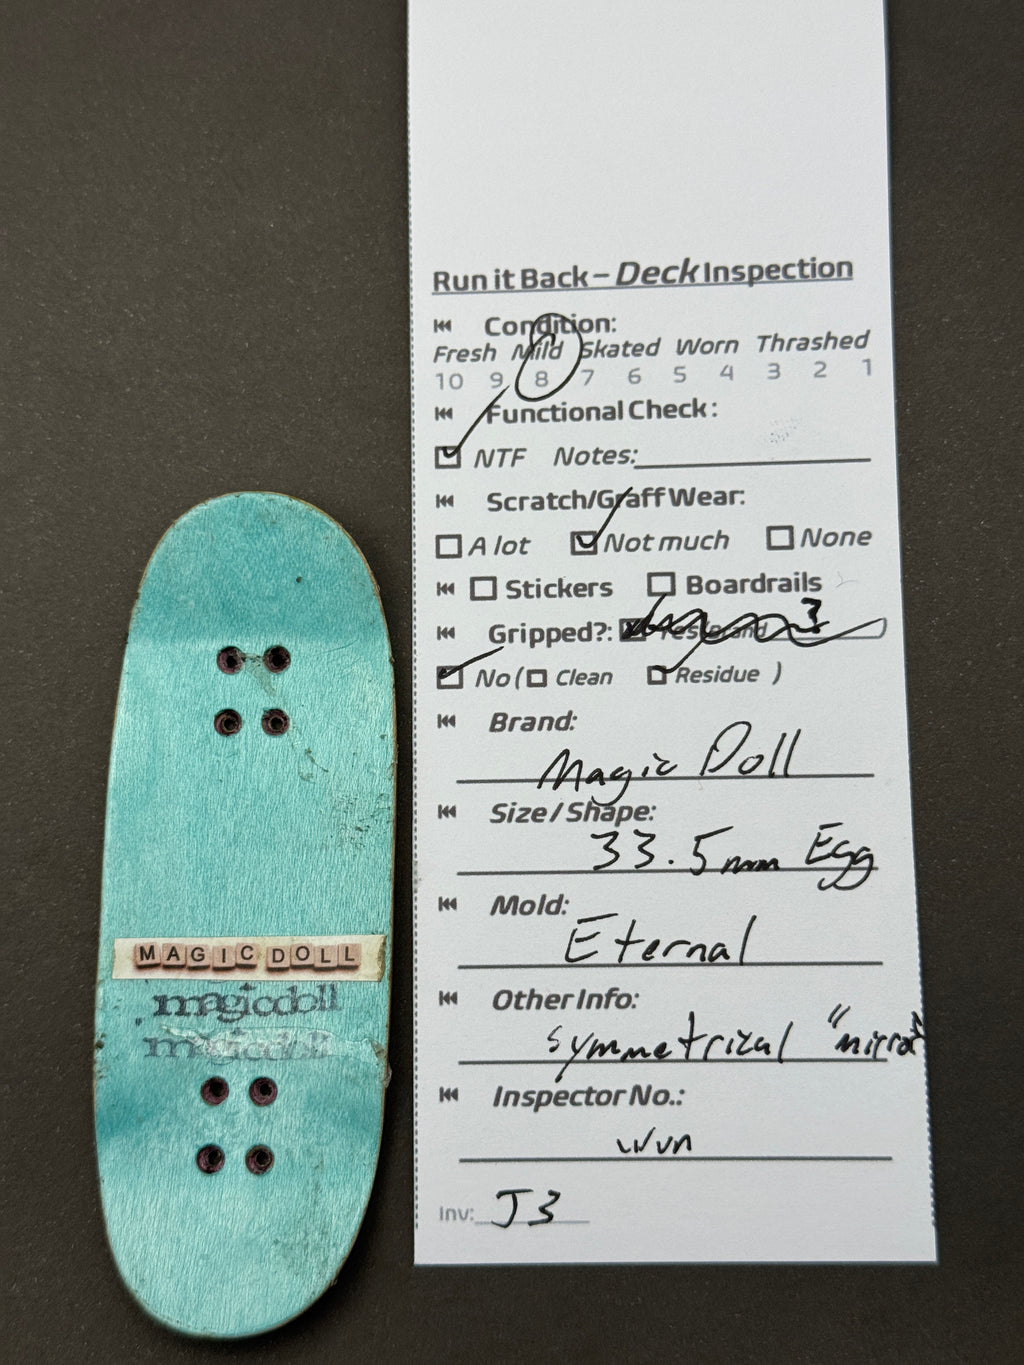 Run it Back – Deck Inspection
Condition:
Fresh Mild Skated Worn Thrashed
10 9 8 7 6 5 4 3 2 1
Functional Check:
NTF Notes:
Scratch/Graff Wear:
A lot Not much None
Stickers Boardrails
Gripped?: Yes Brand 3
No ( Clean Residue )
Brand:
Magic Doll
Size / Shape:
33.5mm Egg
Mold:
Eternal
Other Info:
symmetrical "mirror"
Inspector No.:
wun
Inv: J3
MAGIC DOLL
magicdoll
magicdoll